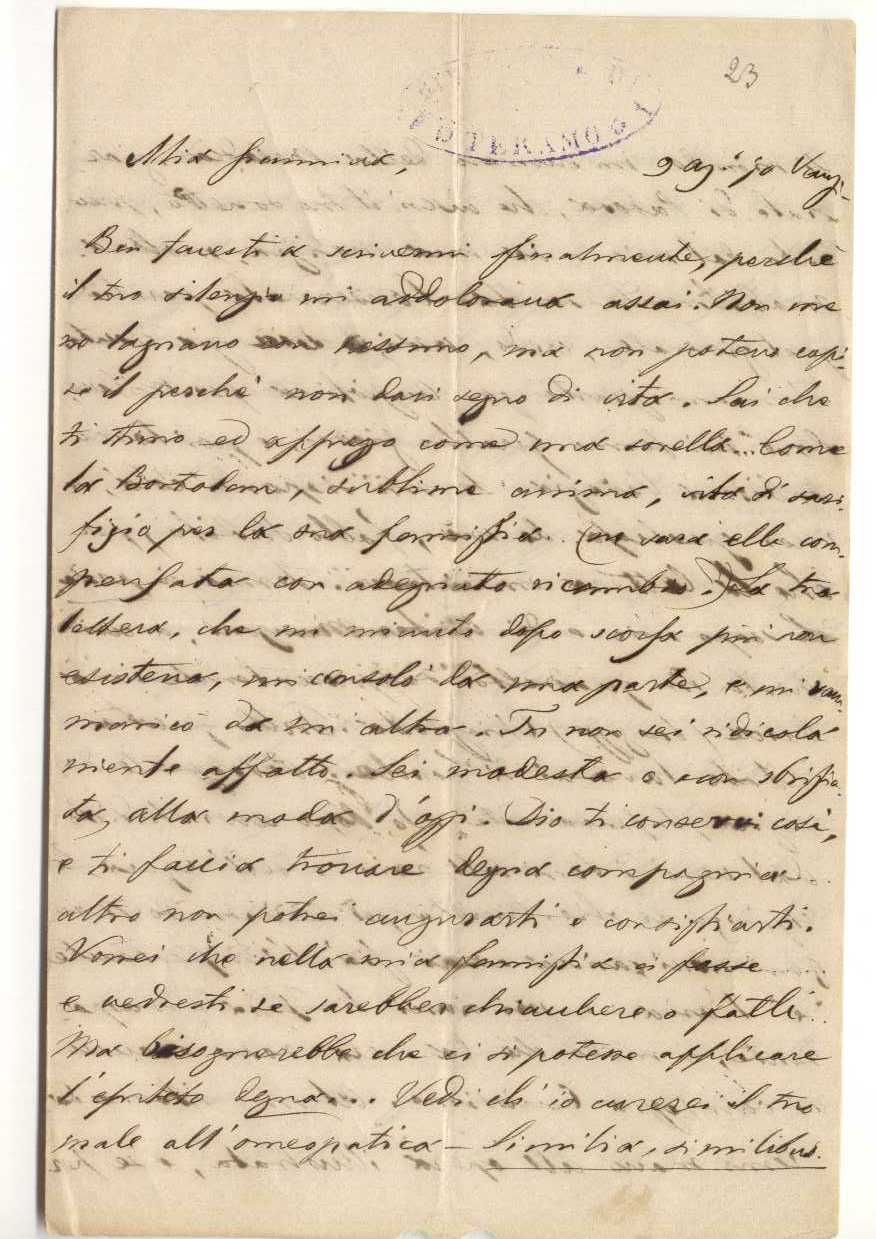 23
TERAMO
Mia Giannina,
9 ag. 90
Ben facesti a scrivermi finalmente, perchè
il tuo silenzio mi addolorava assai. Non me
no lagnavo con nessuno, ma non potevo capi-
re il perchè non davi segno di vita. Sai che
ti stimo ed apprezzo come una sorella... Come
la Bortolan, sublime anima, vita di sacri-
fizio per la sua famiglia. (ne sarà ella com-
pensata con adeguato ricambio.) La tua
lettera, che un minuto dopo scorsa più non
esisteva, mi consolò da una parte, e mi ram-
maricò da un altra. Tu non sei ridicola
niente affatto. Sei modesta e non
alla moda d'oggi. Dio ti conservi così,
e ti faccia trovare degna compagnia..
altro non potrei augurarti o consigliarti.
Vorrei che nella mia famiglia ci fosse.....
e vedresti se sarebber chiacchere o fatti..
Ma bisognerebbe che ci si potesse applicare
l'epiteto degna... Vedi ch' io curerei il tuo
male all'omeopatica - Similia, similibus.